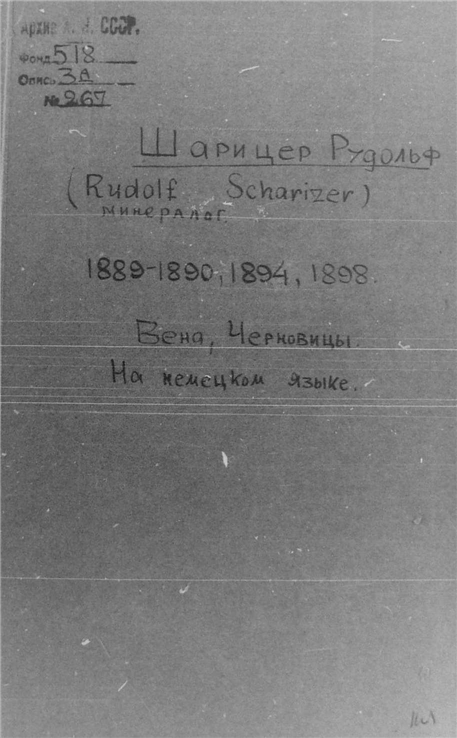 Архив А. Н. СССР.
Фонд 518
Опись 3А
№ 267
Шарицер Рудольф
(Rudolf Scharizer)
минералог.
1889-1890, 1894, 1898.
Вена, Черновицы.
На немецком языке.